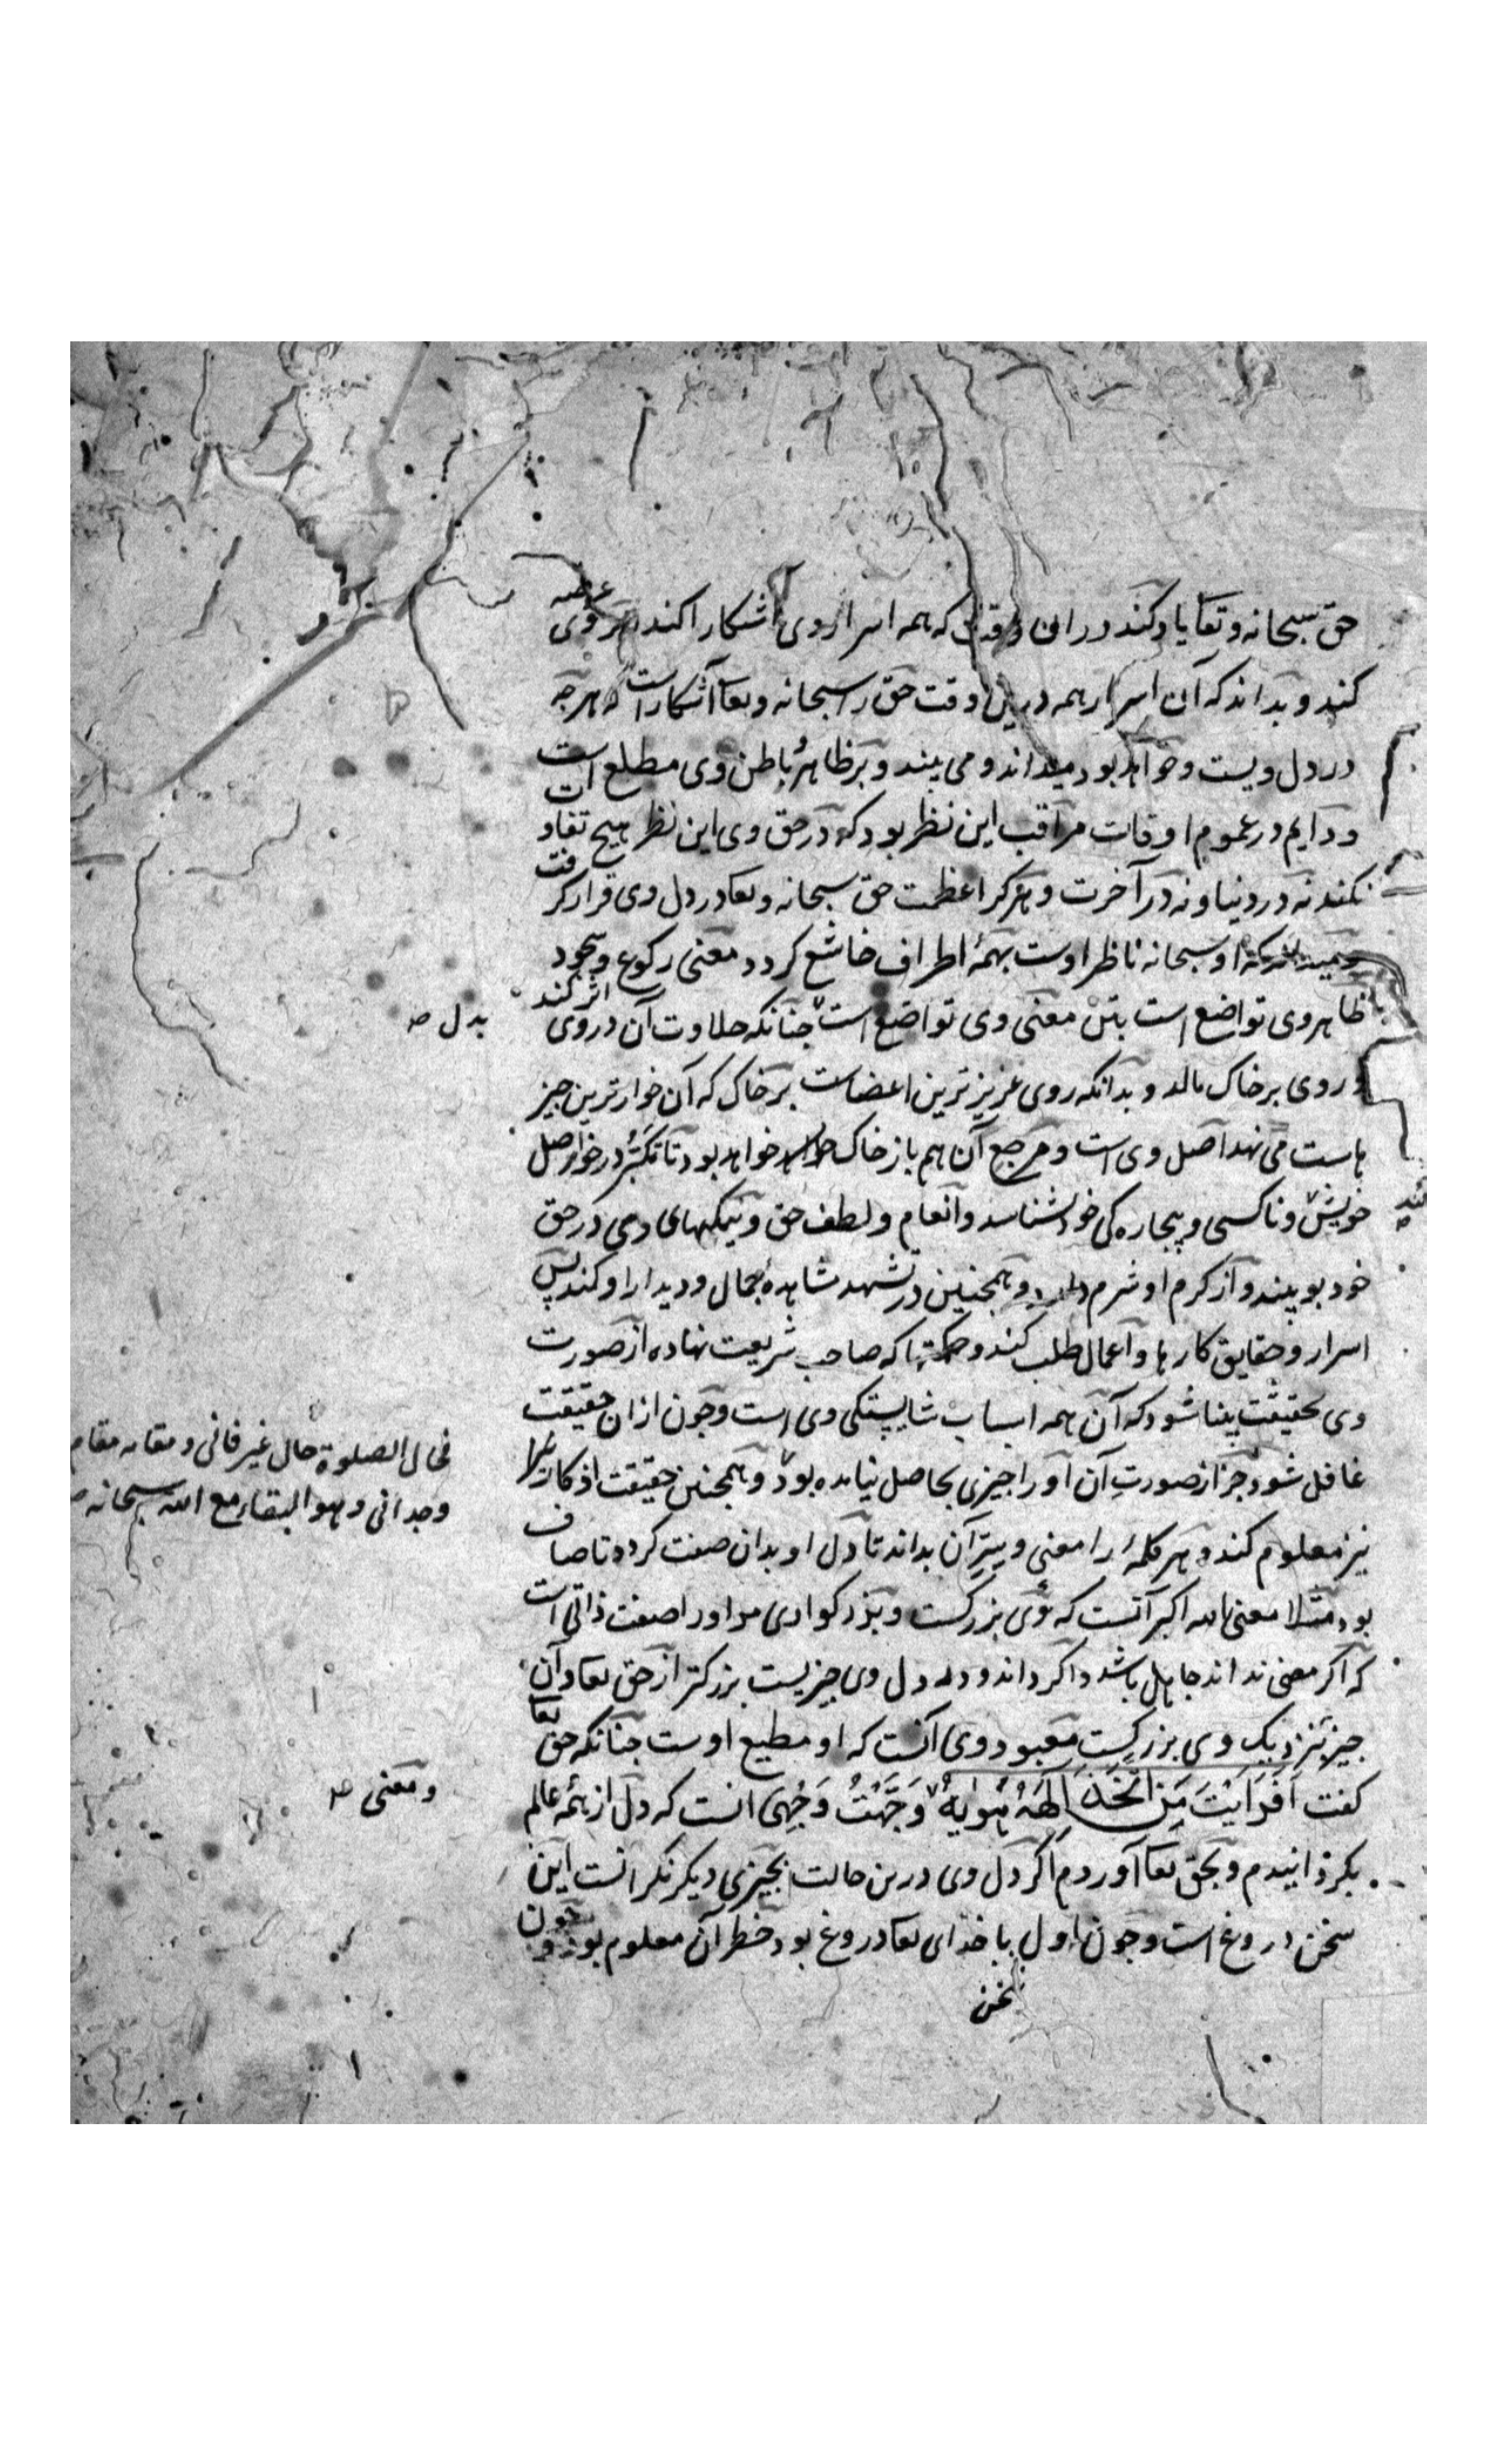 حق سبحانه وتعا یاد کند در این وقت که همه اسرار وی آشکارا کند وبر وی عرضه
کند و بداند که آن اسرار همه درین وقت حق را سبحانه وتعا آشکار است که هرچه
در دل ویست وخواهد بود میداند و می بیند و بر ظاهر باطن وی مطلع است
ودایم در عموم اوقات مراقب این نظر بود که در حق وی این نظر هیچ تفاوت
نکند نه در دنیا ونه در آخرت وهرکرا عظمت حق سبحانه وتعا در دل وی قرار کرفت
که او سبحانه ناظر اوست بهمهٔ اطراف خاشع کردد معنی رکوع وسجود
ظاهر وی تواضع است بتن معنی وی تواضع است چنانکه حلاوت آن در وی اثر کند
بدل صه
و روی بر خاک مالد و بدانکه روی عزیزترین اعضاست بر خاک که آن خوارترین چیز
هاست می نهد اصل وی است ومرجع آن هم باز خاک خواهد بود تا تکبر در خور اصل
خویش وناکسی وبیچاره کی خود شناسد وانعام ولطف حق ونیکیهای وی در حق
خود بیند و از کرم او شرم دارد وهمچنین در تشهد مشاهدهٔ جمال ودیدار او کند پس
اسرار وحقایق کارها واعمال طلب کند وحکمتها که صاحب شریعت نهاده از صورت
وی بحقیقت بینا شود که آن همه اسباب شایستکی وی است وچون از ان حقیقت
غافل شود جز از صورت آن او را چیزی بحاصل نیامده بود وهمچنین حقیقت اذکار نماز
فحال الصلوة حال غیر فانی ومقامه مقام
وجدانی وهو البقاء مع الله سبحانه صه
نیز معلوم کند وهر کلمهٔ را معنی وسِرّ آن بداند تا دل او بدان صفت کردد تا صادق
بود مثلا معنی الله اکبر آنست که وی بزرکست وبزرکواری مر او را صفت ذاتی است
که اکر معنی نداند جاهل باشد واکر داند ودر دل وی چیزیست بزرکتر از حق تعا وآن
چیز بنزدیک وی بزرکست معبود وی آنست که او مطیع اوست چنانکه حق تعا
کفت اَفَرَاَیْتَ مَنِ اتَّخَذَ اِلٰهَهُ هَوٰیهُ وَجَّهْتُ وَجْهِیَ انست که دل از همهٔ عالم
ومعنی صه
بکردانیدم وبحق تعا آوردم اکر دل وی درین حالت بچیزی دیکر نکرانست این
سخن دروغ است وچون اول با خدای تعا دروغ بود خطر آن معلوم بود وچون
سخن